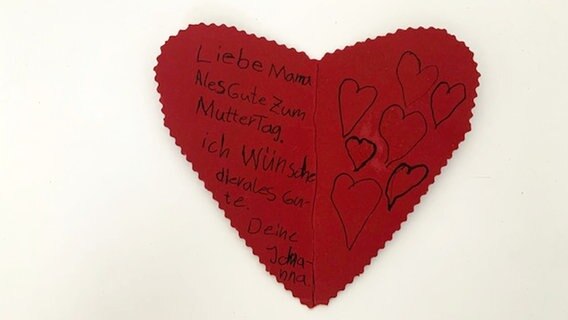 Liebe Mama
Ales Gute Zum
MutterTag.
ich Wünsche
dir ales Gu-
te.
Deine
Joha-
nna.